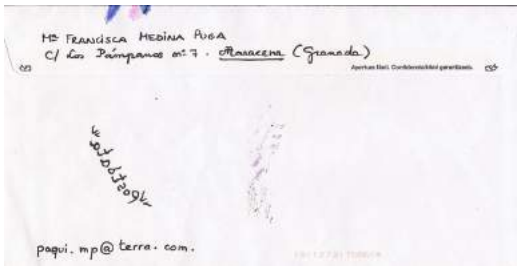 Mª FRANCISCA MEDINA PUGA
C/ Los Pámpanos nº 7. Maracena (Granada)
Apertura fácil. Confidencialidad garantizada.
paqui.mp@terra.com.